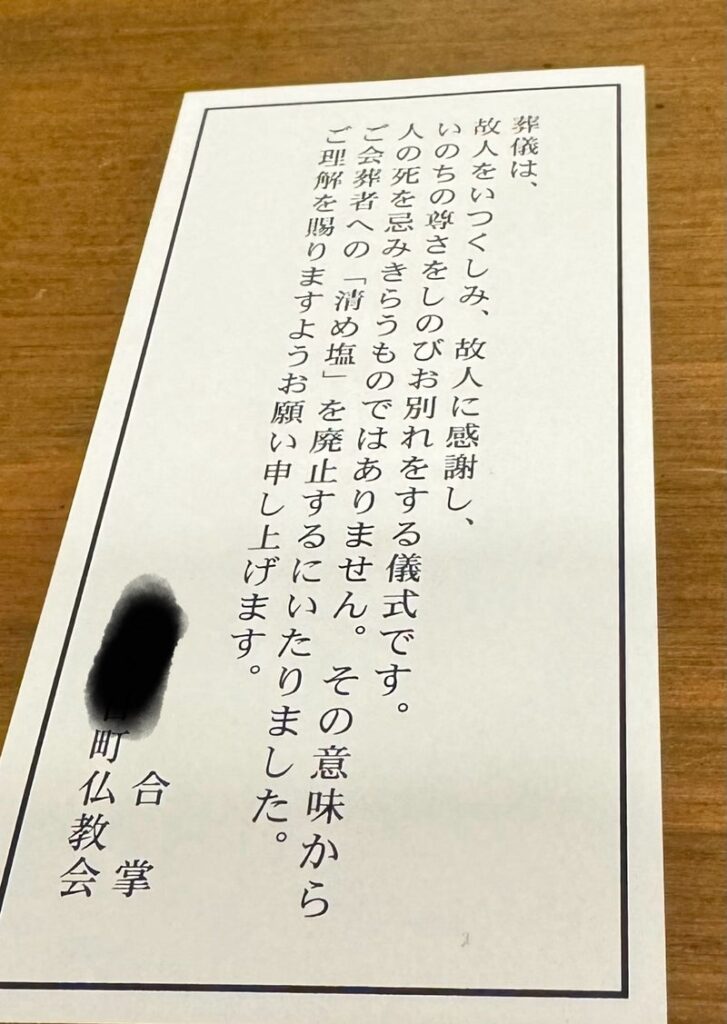 葬儀は、
故人をいつくしみ、故人に感謝し、
いのちの尊さをしのびお別れをする儀式です。
人の死を忌みきらうものではありません。その意味から
ご会葬者への「清め塩」を廃止するにいたりました。
ご理解を賜りますようお願い申し上げます。
合掌
町仏教会